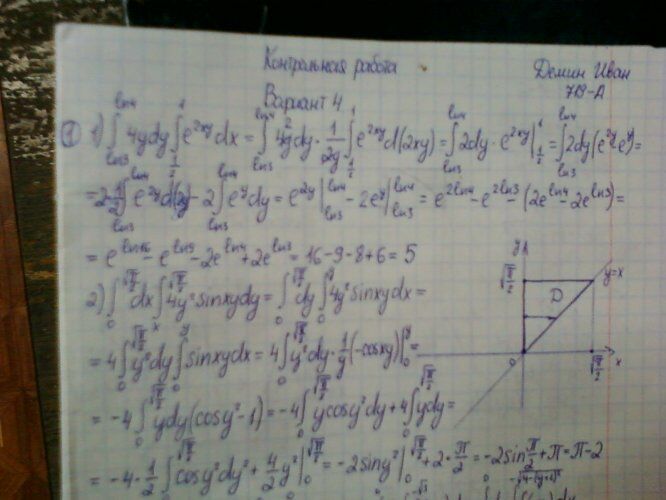 Контрольная работа
Демин Иван
719-А
Вариант 4
① 1) ∫_{ln3}^{ln4} 4ydy ∫_{1/2}^{1} e^{2xy}dx = ∫_{ln3}^{ln4} 4ydy · 1/2y ∫_{1/2}^{1} e^{2xy}d(2xy) = ∫_{ln3}^{ln4} 2dy · e^{2xy}|_{1/2}^{1} = ∫_{ln3}^{ln4} 2dy(e^{2y}-e^{y}) =
= 2·1/2 ∫_{ln3}^{ln4} e^{2y}d(2y) - 2∫_{ln3}^{ln4} e^{y}dy = e^{2y}|_{ln3}^{ln4} - 2e^{y}|_{ln3}^{ln4} = e^{2ln4} - e^{2ln3} - (2e^{ln4} - 2e^{ln3}) =
= e^{ln16} - e^{ln9} - 2e^{ln4} + 2e^{ln3} = 16-9-8+6 = 5
2) ∫_{0}^{√(π/2)} dx ∫_{x}^{√(π/2)} 4y² sinxydy = ∫_{0}^{√(π/2)} dy ∫_{0}^{y} 4y² sinxydx =
= 4∫_{0}^{√(π/2)} y²dy ∫_{0}^{y} sinxydx = 4∫_{0}^{√(π/2)} y²dy · 1/y (-cosxy)|_{0}^{y} =
= -4∫_{0}^{√(π/2)} ydy(cosy²-1) = -4∫_{0}^{√(π/2)} ycosy²dy + 4∫_{0}^{√(π/2)} ydy =
= -4·1/2 ∫_{0}^{√(π/2)} cosy²dy² + 4/2 y²|_{0}^{√(π/2)} = -2siny²|_{0}^{√(π/2)} + 2·π/2 = -2sin π/2 + π = π-2
y
√(π/2)
y=x
D
0
√(π/2)
x